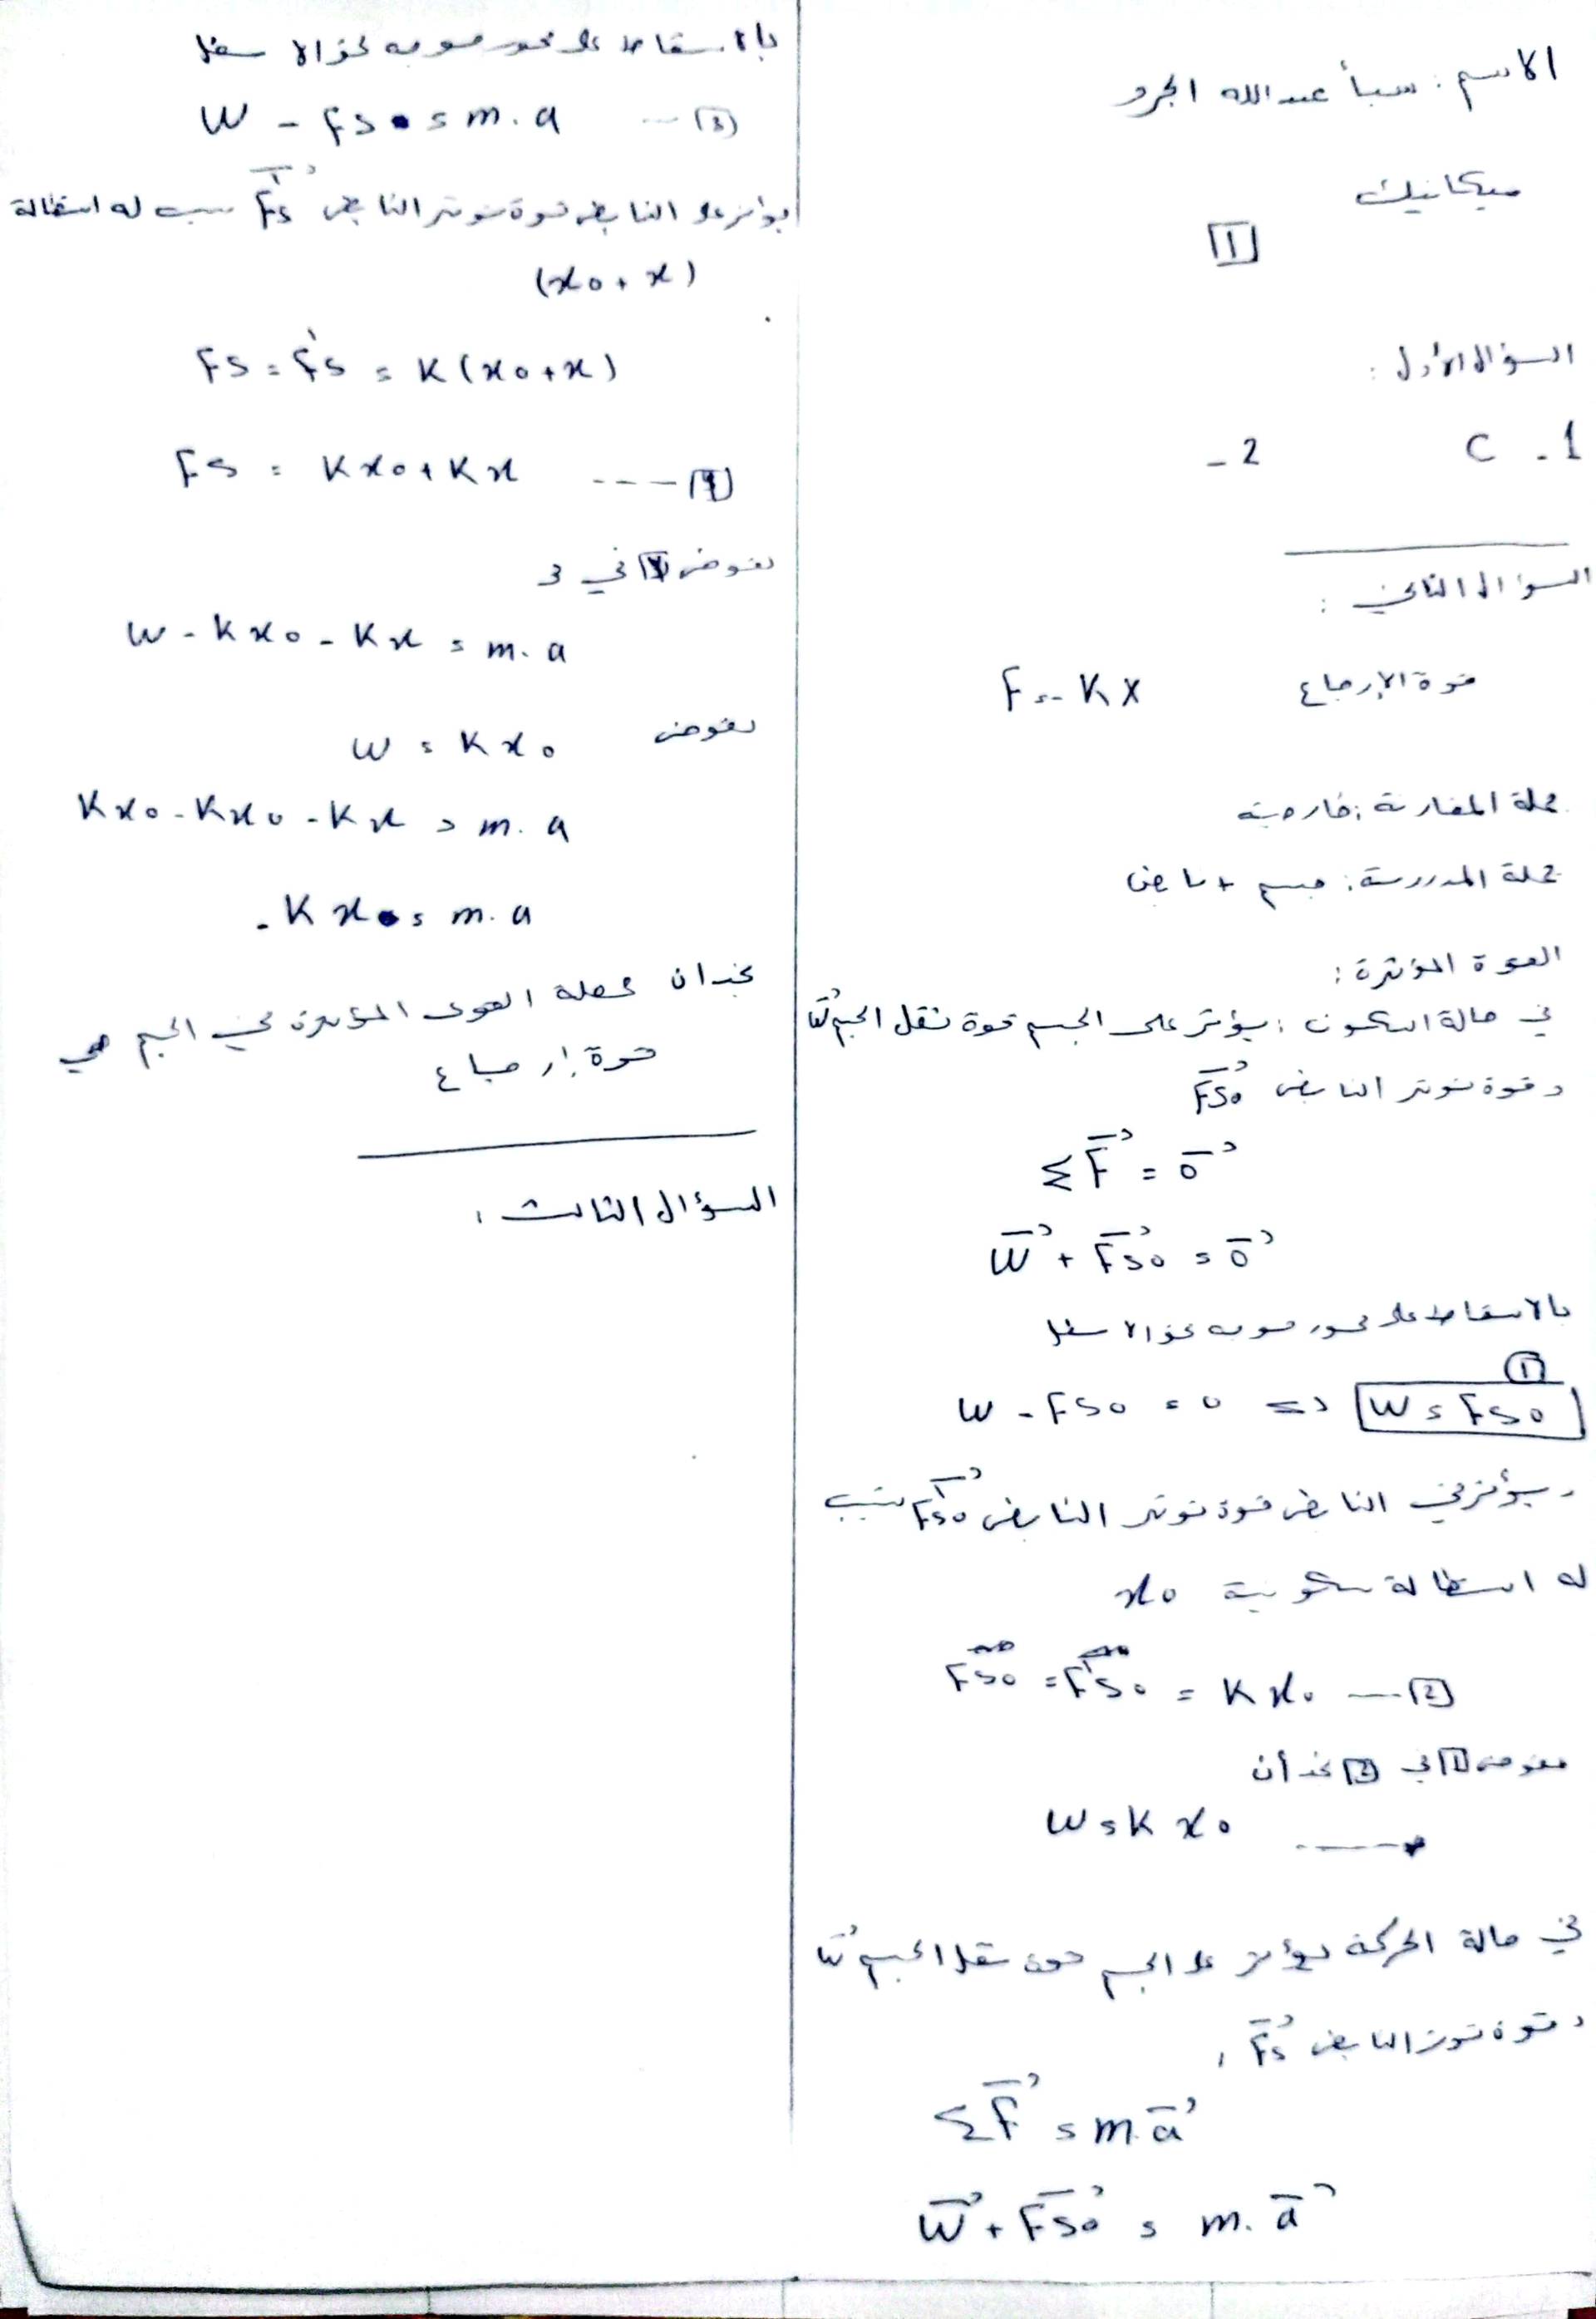 الاسم : سبأ عبد الله الجرو
ميكانيك
1
السؤال الأول :
1 - C 2 -
السؤال الثاني :
قوة الإرجاع F = - K X
جملة المقارنة : خارجية
جملة المدروسة : جسم + نابض
القوة المؤثرة :
في حالة السكون : يؤثر على الجسم قوة ثقل الجسم W⃗
و قوة توتر النابض F⃗s0
Σ F⃗ = 0⃗
W⃗ + F⃗s0 = 0⃗
بالاسقاط على محور موجه نحو الاسفل
W - Fs0 = 0 => W = Fs0 (1)
و يؤثر في النابض قوة توتر النابض F⃗'s0 تسبب
له استطالة سكونية x0
Fs0 = F's0 = K x0 --- (2)
نعوض 1 في 2 نجد أن
W = K x0 ----*
في حالة الحركة يؤثر على الجسم قوة ثقل الجسم W⃗
و قوة توتر النابض F⃗s ,
Σ F⃗ = m.a⃗
W⃗ + F⃗s0 = m. a⃗
بالاسقاط على محور موجه نحو الاسفل
W - Fs = m. a --- (3)
يؤثر على النابض قوة توتر النابض F⃗'s تسبب له استطالة
(x0 + x)
Fs = F's = K (x0 + x)
Fs = K x0 + K x ---- (4)
نعوض 4 في 3
W - K x0 - K x = m. a
نعوض W = K x0
K x0 - K x0 - K x = m. a
- K x = m. a
نجد ان محصلة القوى المؤثرة في الجسم هي
قوة إرجاع
السؤال الثالث :